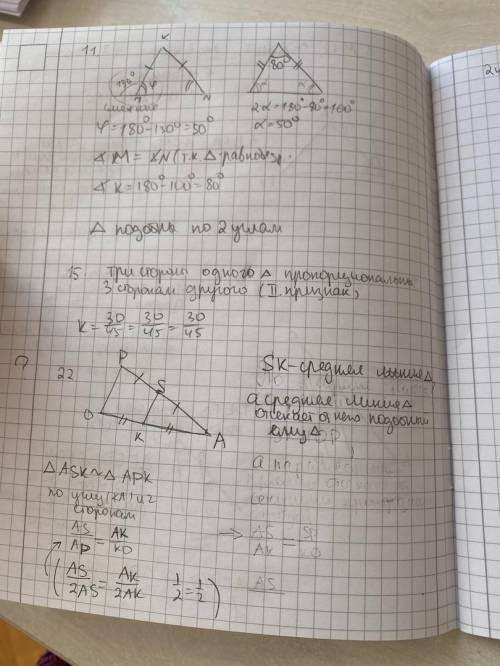 11
K
130°
φ
N
80°
смежные
2α=180°-80°=100°
φ=180°-130°=50°
α=50°
∢M = ∢N (т.к Δ-равнобедр.
∢K=180°-100°=80°
Δ подобны по 2 углам
15 Три стороны одного Δ пропорциональны
3 сторонам другого (III признак)
K= 30/45 = 30/45 = 30/45
22
P
S
O
K
A
SK-средняя линия Δ,
а средняя линия Δ
отсекает от него подобный
ему Δ
ΔASK~ΔAPK
по углу (∢A) и 2
сторонам
AS/AP = AK/KO
→ AS/AK = SP/KO
( AS/2AS = AK/2AK 1/2=1/2 )
AS